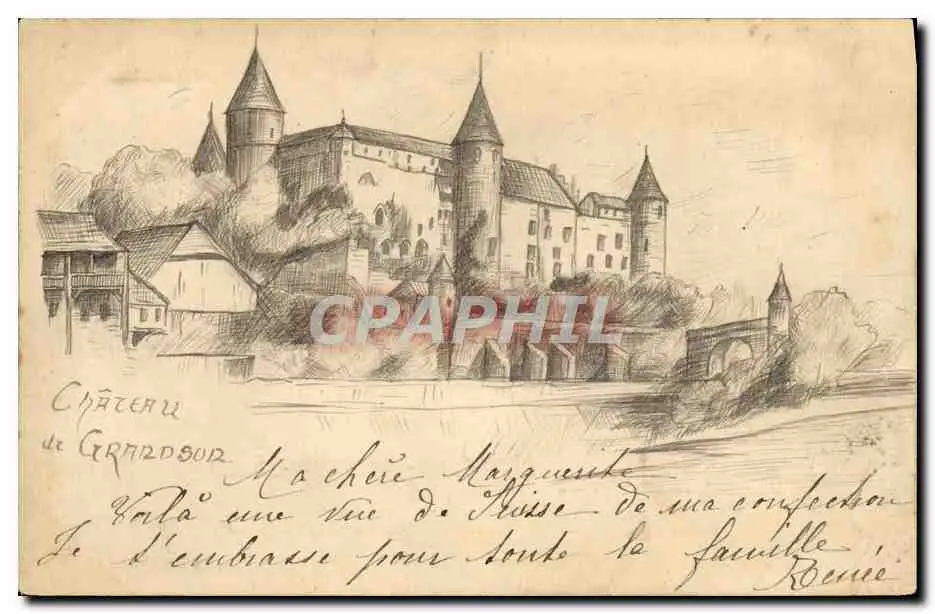 CPAPHIL
Château
de Grandson
Ma chère Marguerite
Voilà une vue de Suisse de ma confection
Je t'embrasse pour toute la famille
Renée